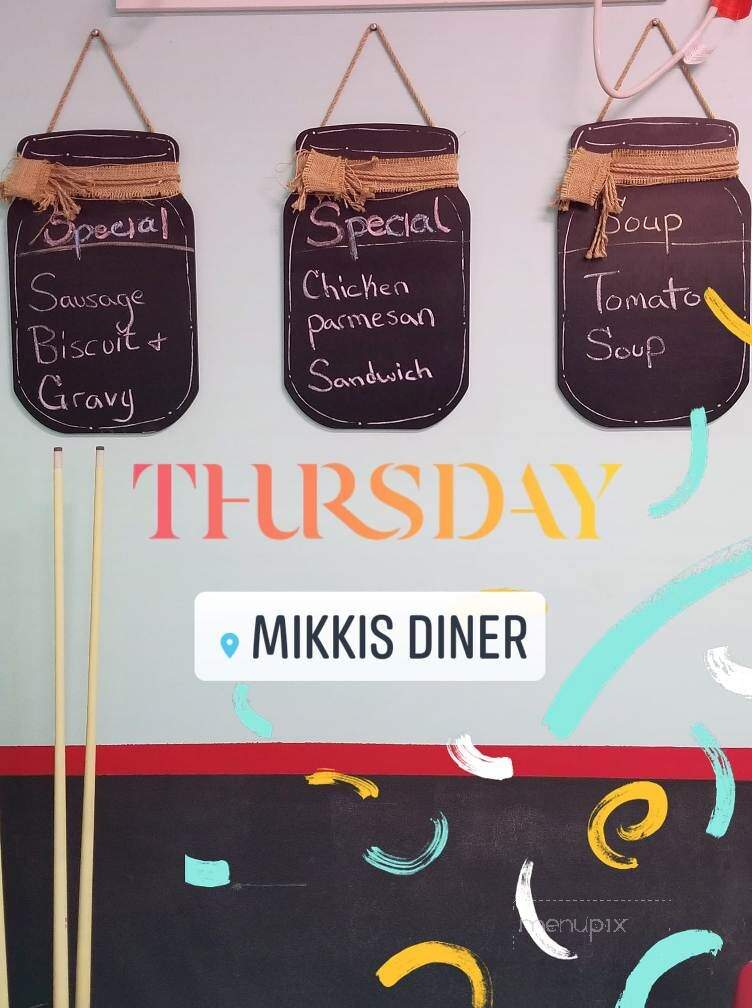 Special
Sausage
Biscuit +
Gravy
Special
Chicken
parmesan
Sandwich
Soup
Tomato
Soup
THURSDAY
MIKKIS DINER
menupix